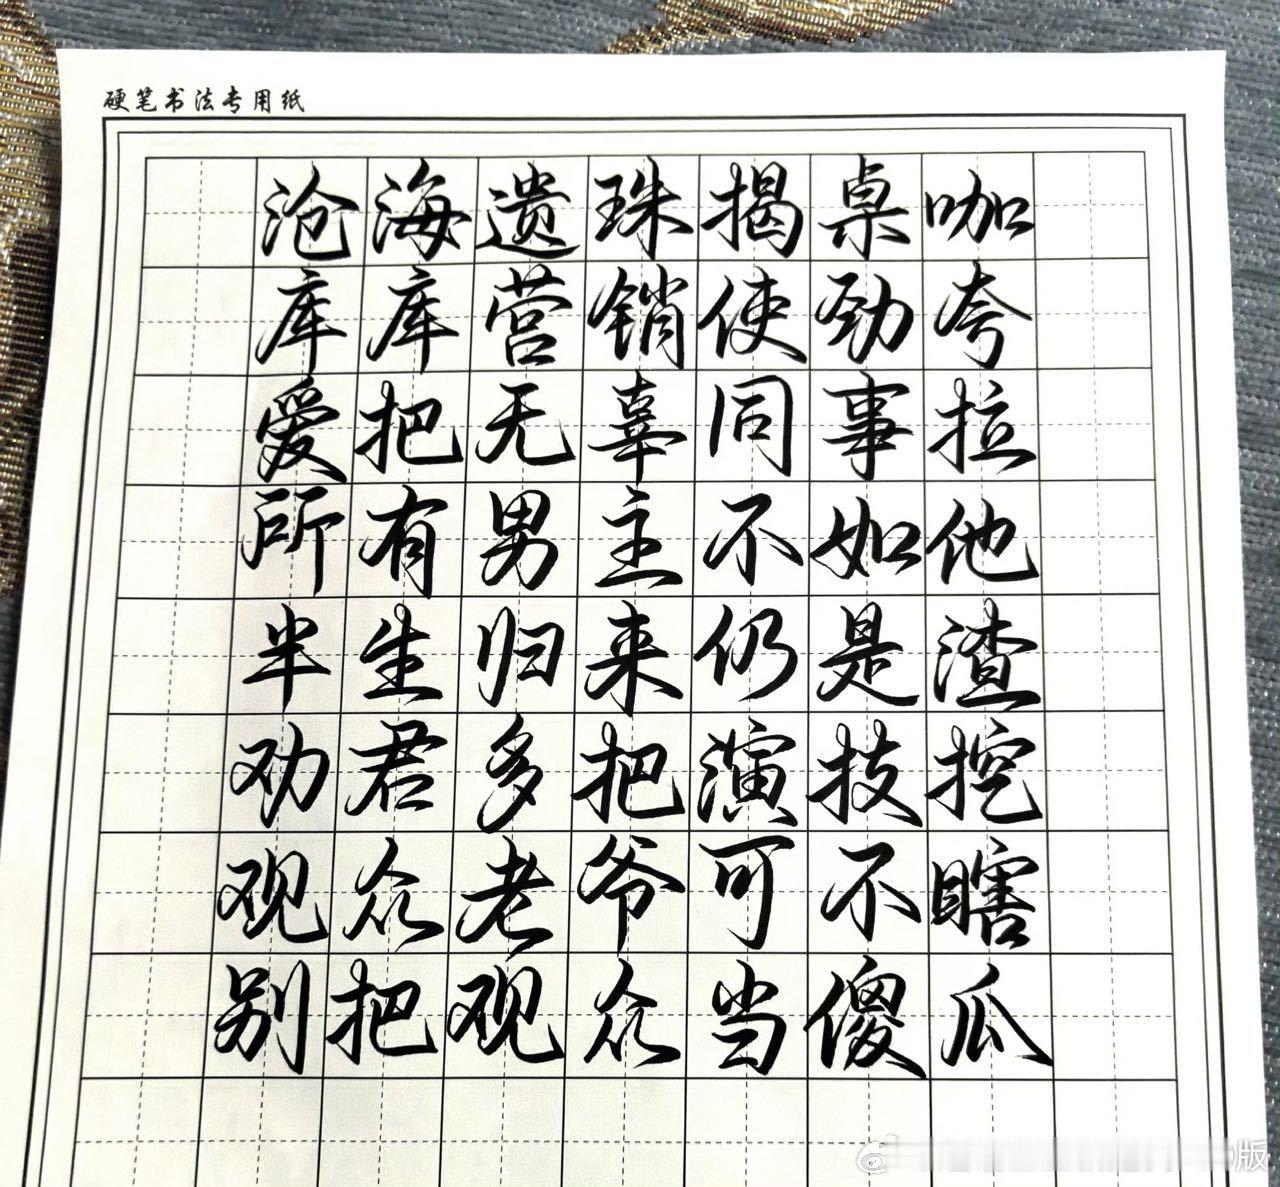 硬笔书法专用纸
沧海遗珠揭桌咖
库库营销使劲夸
爱把无辜同事拉
所有男主不如他
半生归来仍是渣
劝君多把演技挖
观众老爷可不瞎
别把观众当傻瓜
版